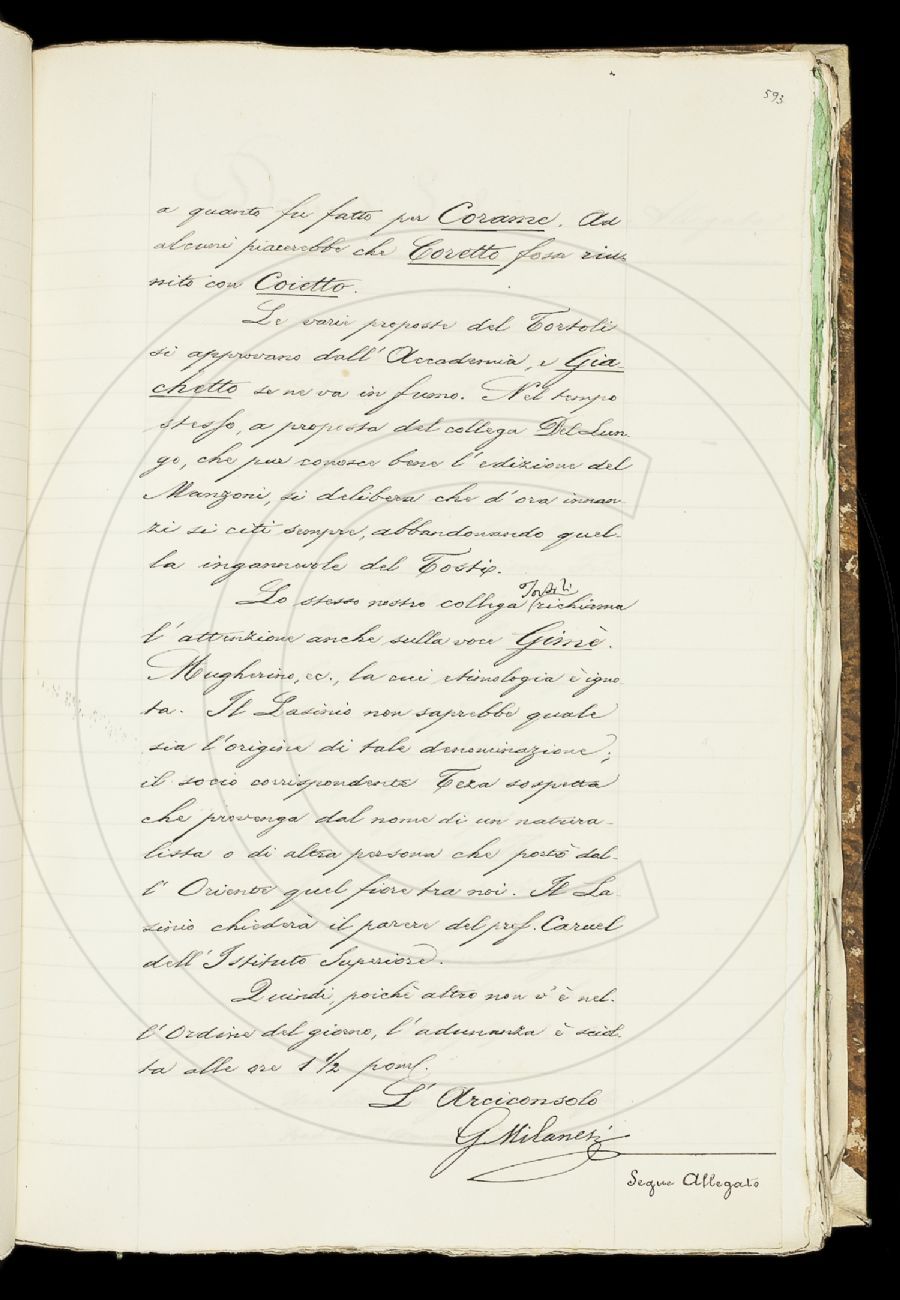 593
a quanto fu fatto per Corame. Ad
alcuni piacerebbe che Coretto fosse riu-
nito con Coietto.
Le varie proposte del Tortoli
si approvano dall'Accademia, e Gia-
chetto se ne va in fumo. Nel tempo
stesso, a proposta del collega Del Lun-
go, che pur conosce bene l'edizione del
Manzoni, si delibera che d'ora innan-
zi si citi sempre, abbandonando quel-
la ingannevole del Tosti.
Tortoli
Lo stesso nostro collega richiama
l'attenzione anche sulla voce Gimè.
Mugherino, ec., la cui etimologia è igno
ta. Il Lasinio non saprebbe quale
sia l'origine di tale denominazione;
il socio corrispondente Teza sospetta
che provenga dal nome di un natura-
lista o di altra persona che portò dal-
l'Oriente quel fiore tra noi. Il La-
sinio chiederà il parere del prof. Caruel
dell'Istituto Superiore.
Quindi, poichè altro non v'è nel-
l'Ordine del giorno, l'adunanza è sciol-
ta alle ore 1 1/2 pom.
L'Arciconsolo
G Milanesi
Segue Allegato